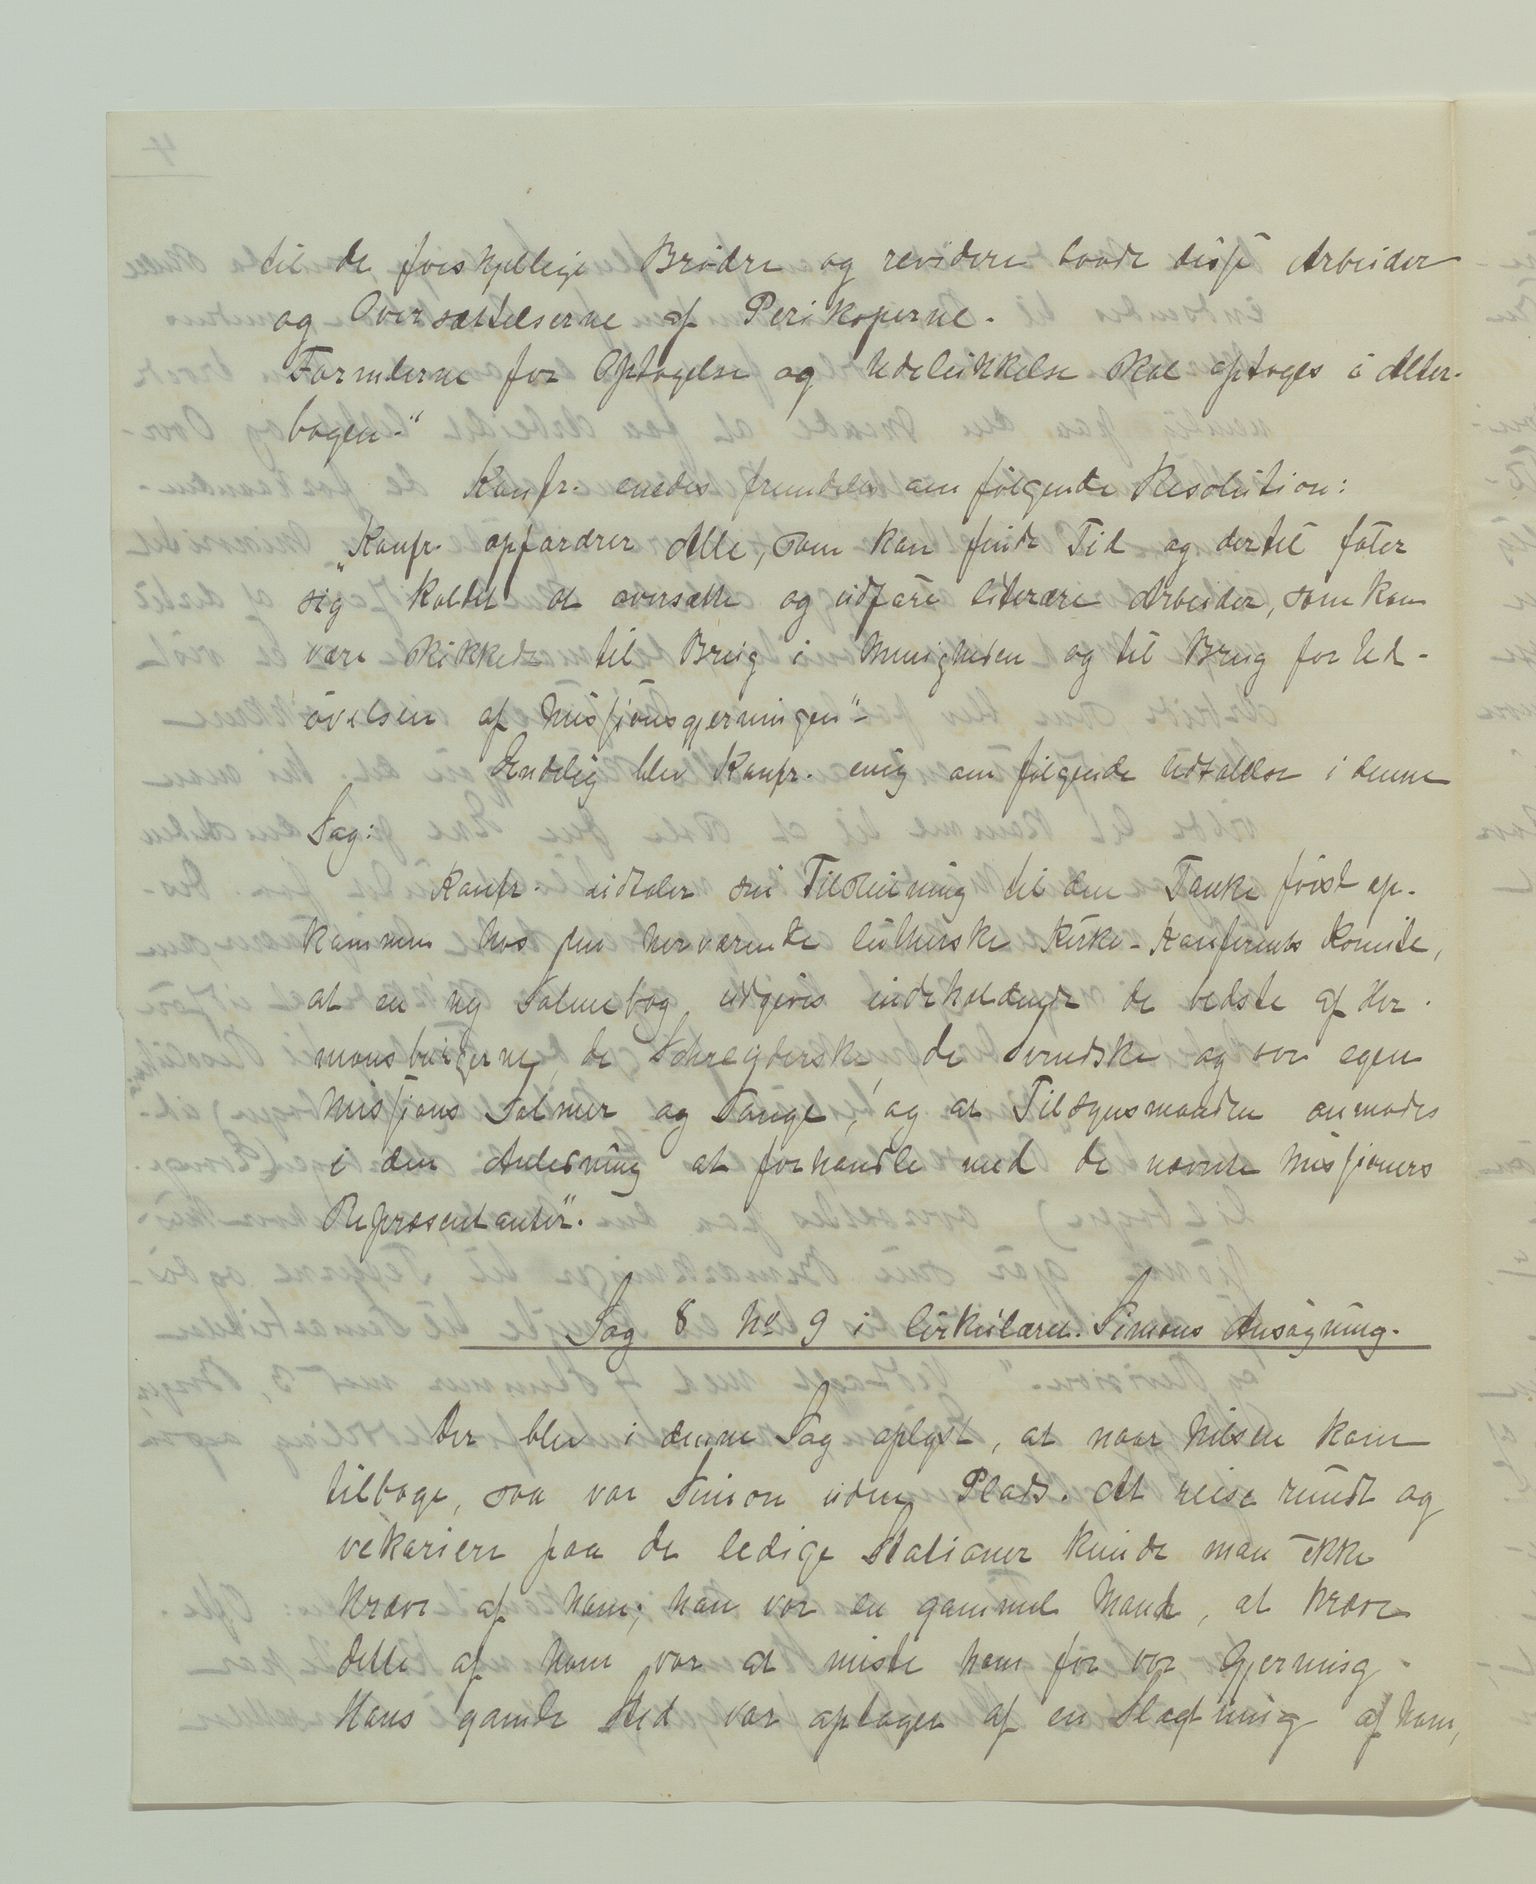 til de forskjellige Brødre og revidere baade disse Arbeider
og Oversættelserne af Perikoperne.
Formlerne for Optagelse og Udelukkelse skal optages i Alter-
bogen."
Konfr. enedes fremdeles om følgende Resolution:
"Konfr. opfordrer Alle, som kan finde Tid og dertil føler
sig kaldet at oversætte og udføre literære Arbeider, som kan
være skikkede til Brug i Menigheden og til Brug for Ud-
øvelsen af Missionsgjerningen"
Endelig blev Konfr. enig om følgende Udtalelse i denne
Sag:
Konfr. udtaler sin Tilslutning til den Tanke først op-
kommen hos den herværende lutherske Kirke-Konferents Komite,
at en ny Salmebog udgives indeholdende de bedste af Her-
mansburgerne, de Schreyderske, de Svendske og vor egen
Missions Salmer og Sange, og at Tilsynsmanden anmodes
i den Anledning at forhandle med de nævnte Missioners
Repræsentanter".
Sag 8 No 9 i Cirkulæret. Simons Ansøgning.
Der blev i denne Sag oplyst, at naar Nilsen kom
tilbage, saa var Simon uden Plads. At reise rundt og
vikariere paa de ledige Stationer kunde man ikke
kræve af ham; han var en gammel Mand, at kræve
dette af ham var at miste ham for vor Gjerning.
Hans gamle Sted var optaget af en Slægtning af ham,